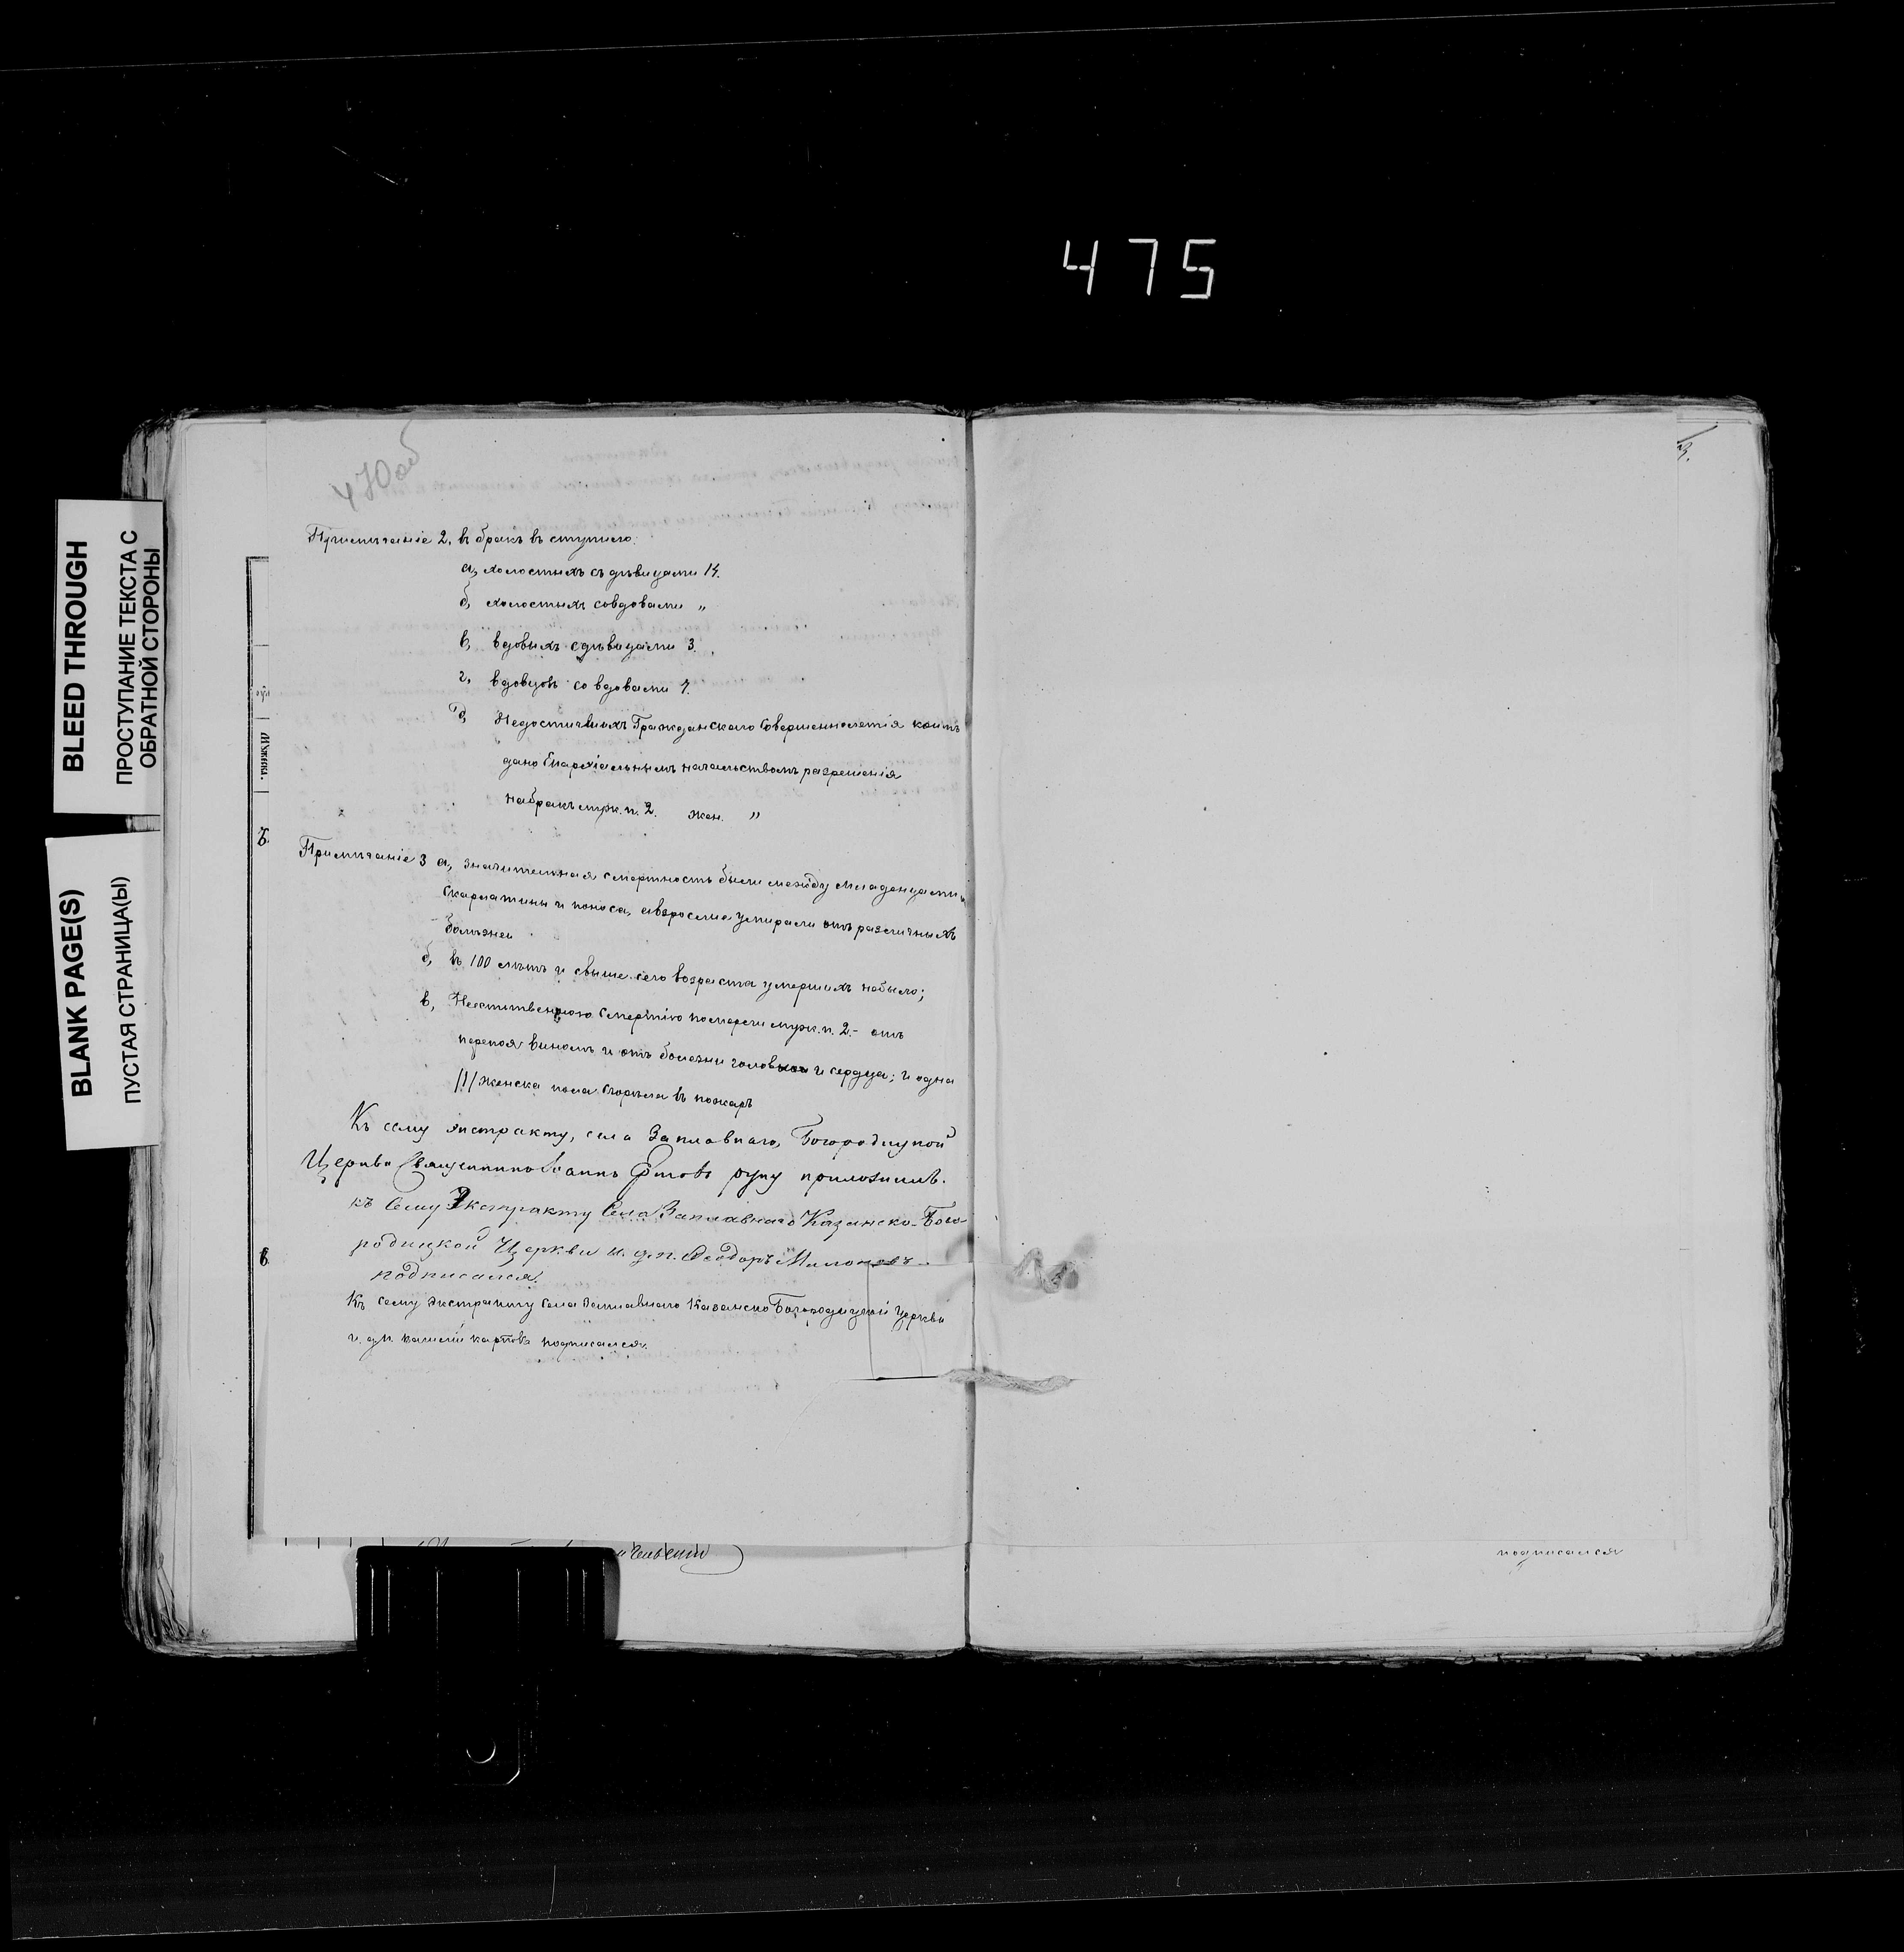 475
BLEED THROUGH
ПРОСТУПАНИЕ ТЕКСТА С
ОБРАТНОЙ СТОРОНЫ
BLANK PAGE(S)
ПУСТАЯ СТРАНИЦА(Ы)
470 об
Примѣчаніе 2, въ бракъ въ ступило:
а, холостыхъ съ дѣвицами 14.
б, холостыхъ совдовами „
в, вдовыхъ сдѣвицами 3.
г, вдовцовъ со вдовами 7.
д, Недостигшихъ Гражданскаго Совершеннолетія коимъ
дано Епархіальнымъ начальствомъ разрешенія
набракъ муж. п. 2. жен. „
Примѣчаніе 3 а, значительная смертность были между младенцами
Скарлатины и поноса, авзрослые умирали отъ различныхъ
болѣзней
б, въ 100 лѣтъ и свыше сего возраста умершихъ небыло;
в, Неестественною Смертію померли муж. п. 2.- отъ
перепоя виномъ и отъ болезни головной и сердца; и одна
/1/ женска пола Сгорѣла въ пожаръ
Къ сему экстракту, села Заплавнаго, Богородицкой
Церкви Священникъ Іоаннъ руку приложилъ.
къ Сему Экстракту Села Заплавнаго Казанско-Бого
родицкой Церкви и. д. п. Ѳеодоръ Милоновъ
подписался.
Къ сему экстракту села Заплавнаго Казанско Богородицкой Церкви
и. д. п. карповъ подписался.
мужска.
подписался